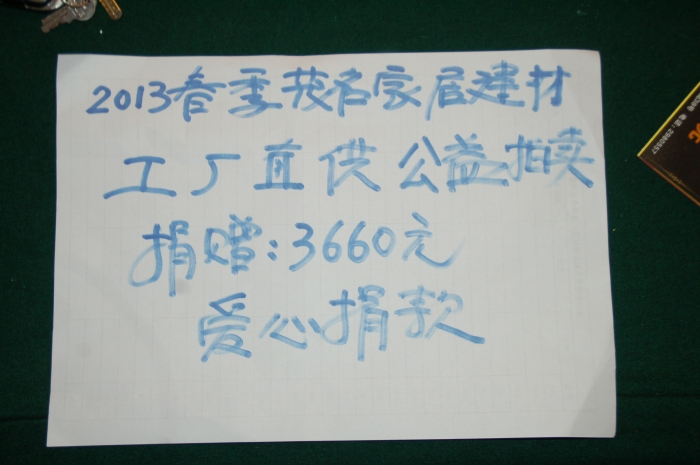 2013春季茂名家居建材
工厂直供公益拍卖
捐赠:3660元
爱心捐款
电话:2920557